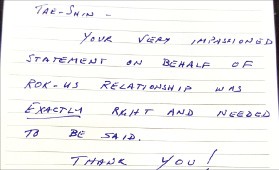 TAE-SHIN -
YOUR VERY IMPASSIONED
STATEMENT ON BEHALF OF
ROK-US RELATIONSHIP WAS
EXACTLY RIGHT AND NEEDED
TO BE SAID.
THANK YOU!